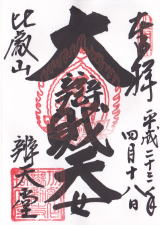 奉拝
平成二十三年
四月十八日
大辨財天女
比叡山
辨天堂